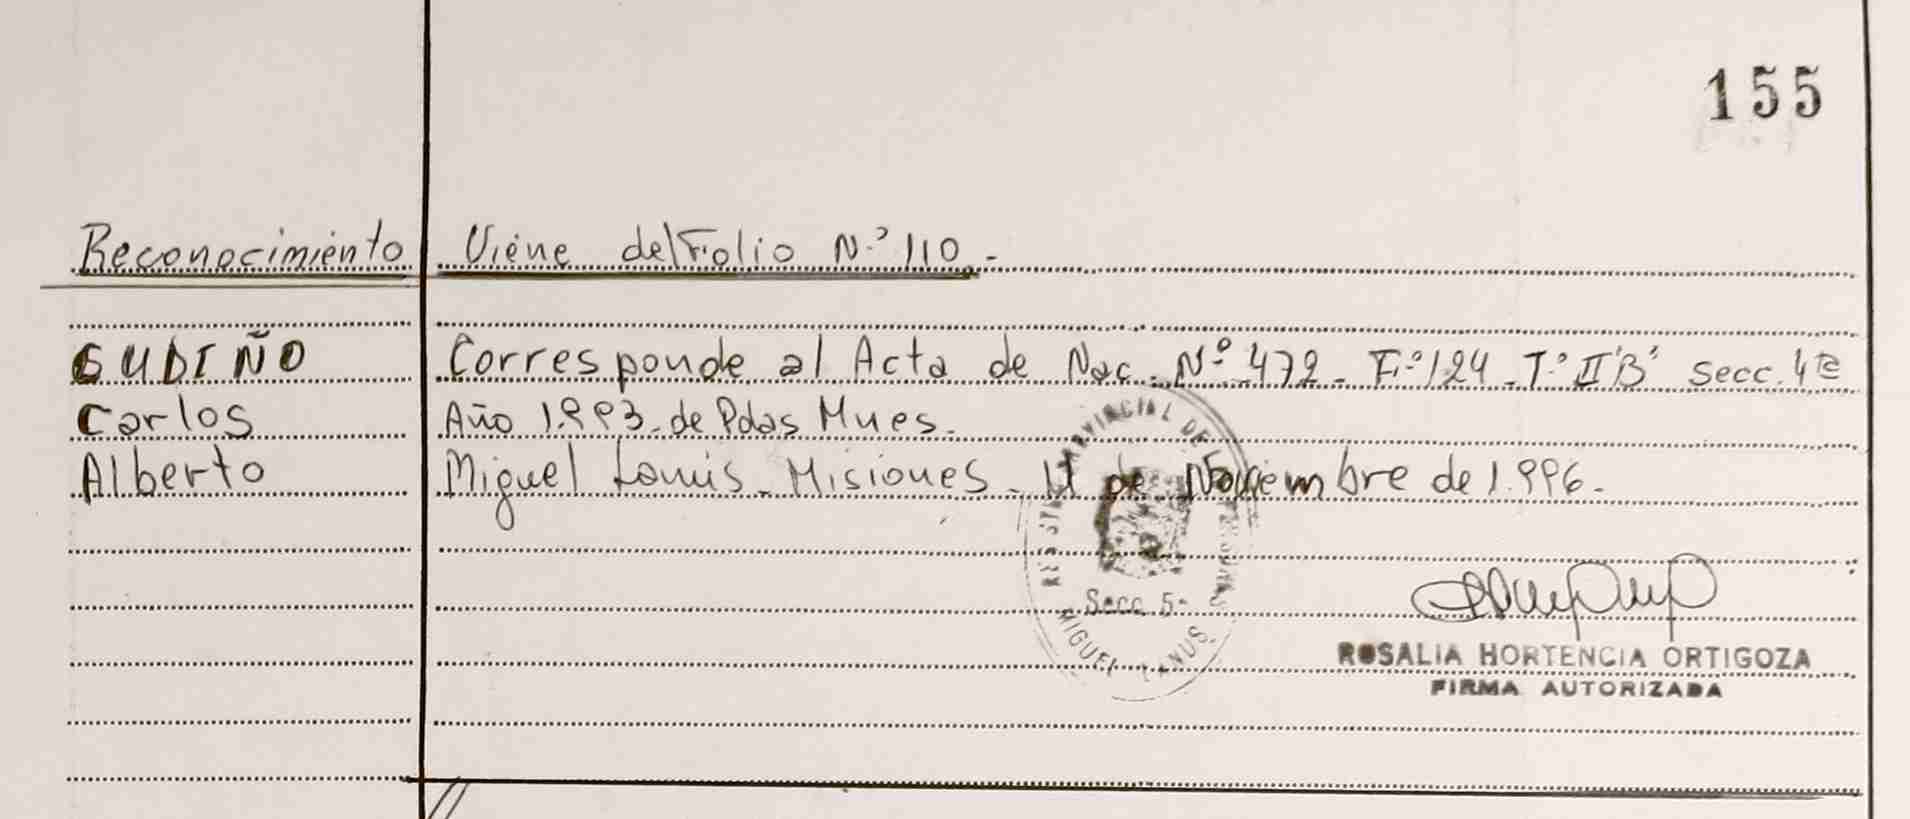 155
Reconocimiento Viene del Folio N.º 110.-
GUDIÑO Corresponde al Acta de Nac. Nº 472. F.º 124. T.º II "B" Secc. 4ta
Carlos Año 1.993. de Pdas Mnes.
Alberto Miguel Lanus. Misiones. 11 de Noviembre de 1.996.
PROVINCIAL DE
Secc 5-
MIGUEL LANUS
ROSALIA HORTENCIA ORTIGOZA
FIRMA AUTORIZADA